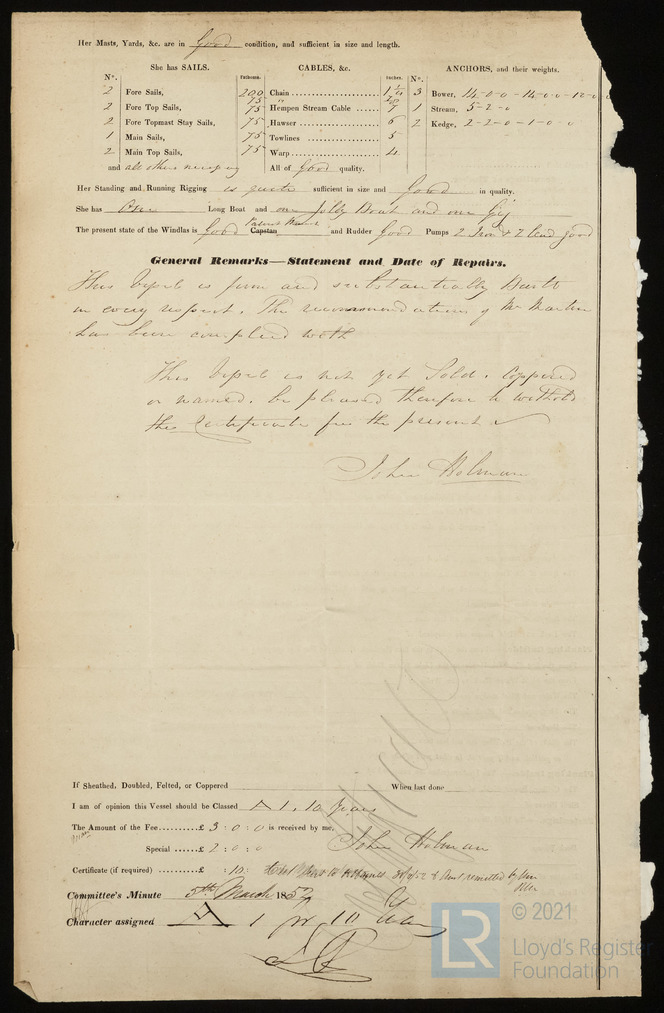 Her Masts, Yards, &c. are in Good condition, and sufficient in size and length.
She has SAILS.
CABLES, &c.
ANCHORS, and their weights.
N°.
Fathoms.
Inches.
N°.
2 Fore Sails,
200 Chain
1 1/4
3 Bower, 14-0-0 - 14-0-0 - 12-0-0
2 Fore Top Sails,
75
75 Hempen Stream Cable
7
1 Stream, 5-2-0
2 Fore Topmast Stay Sails,
75 Hawser
6
2 Kedge, 2-2-0 - 1-0-0
1 Main Sails,
75 Towlines
5
2 Main Top Sails,
75 Warp
4
and all others necessary
All of Good quality.
Her Standing and Running Rigging is quite sufficient in size and Good in quality.
She has One Long Boat and one Jolly Boat and one Gig
Patent
The present state of the Windlas is Good Capstan and Rudder Good Pumps 2 Iron & 2 lead good
General Remarks—Statement and Date of Repairs.
This Vessel is firm and substantially Built
in every respect. The recommendations of Mr Martin
has been complied with
This Vessel is not yet Sold, Coppered
or named, be pleased therefore to withold
the Certificate for the present
John Holman
If Sheathed, Doubled, Felted, or Coppered When last done
I am of opinion this Vessel should be Classed A 1, 10 years
The Amount of the Fee..........£ 3 : 0 : 0 is received by me,
John Holman
Special .......£ 2 : 0 : 0
Certificate (if required) ........£ : 10 :
Committee's Minute 5th March 1852
Character assigned A 1 for 10 Years
LR
© 2021
Lloyd's Register
Foundation